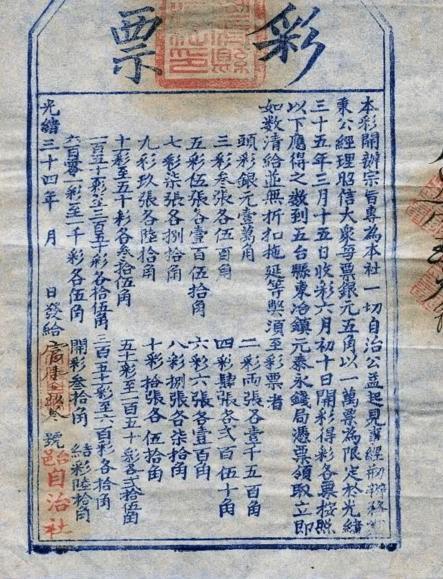 彩票
本彩開辦宗旨專為本社一切自治公益起見事經
秉公經理昭信大衆每票銀元五角以一萬票為限定於光緒
三十五年三月十五日收彩六月初十日開彩得彩各票按照
以下應得之數到五台縣東冶鎮元泰永錢局憑票領取立即
如數清給並無折扣拖延等獘須至彩票者
頭彩銀元壹萬角 二彩兩張各壹千五百角
三彩叁張各伍百角 四彩肆張各弍百伍十角
五彩伍張各壹百伍拾角 六彩六張各壹百角
七彩柒張各捌拾角 八彩捌張各柒拾角
九彩玖張各陸拾角 十彩拾張各伍拾角
十彩至五十彩各叁拾伍角 五十彩至一百五十彩各弍拾伍角
一百五十彩至三百五十彩各拾伍角 三百五十彩至六百彩各拾角
六百零一彩至一千彩各伍角 開彩叁拾角 結彩陸拾角
光緒三十四年 月 日發給 號 台邑自治社